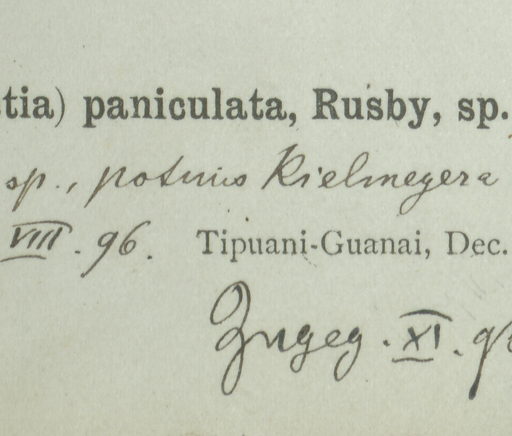 tia) paniculata, Rusby, sp.
sp., potius Kielmeyera
VIII. 96. Tipuani-Guanai, Dec.
XI. 96